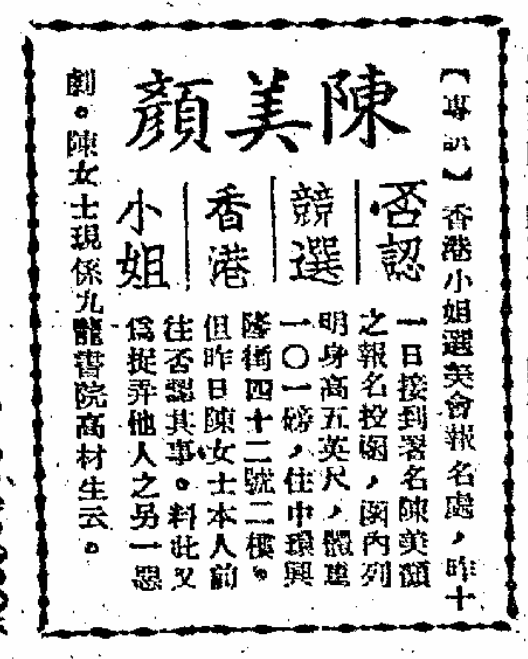 陳美顏
否認
競選
香港
小姐
【專訊】香港小姐選美會報名處，昨十
一日接到署名陳美顏
之報名投函，函內列
明身高五英尺，體重
一〇一磅，住中環興
隆街四十二號二樓。
但昨日陳女士本人前
往否認其事。料此又
爲捉弄他人之另一惡
劇。陳女士現係九龍書院高材生云。